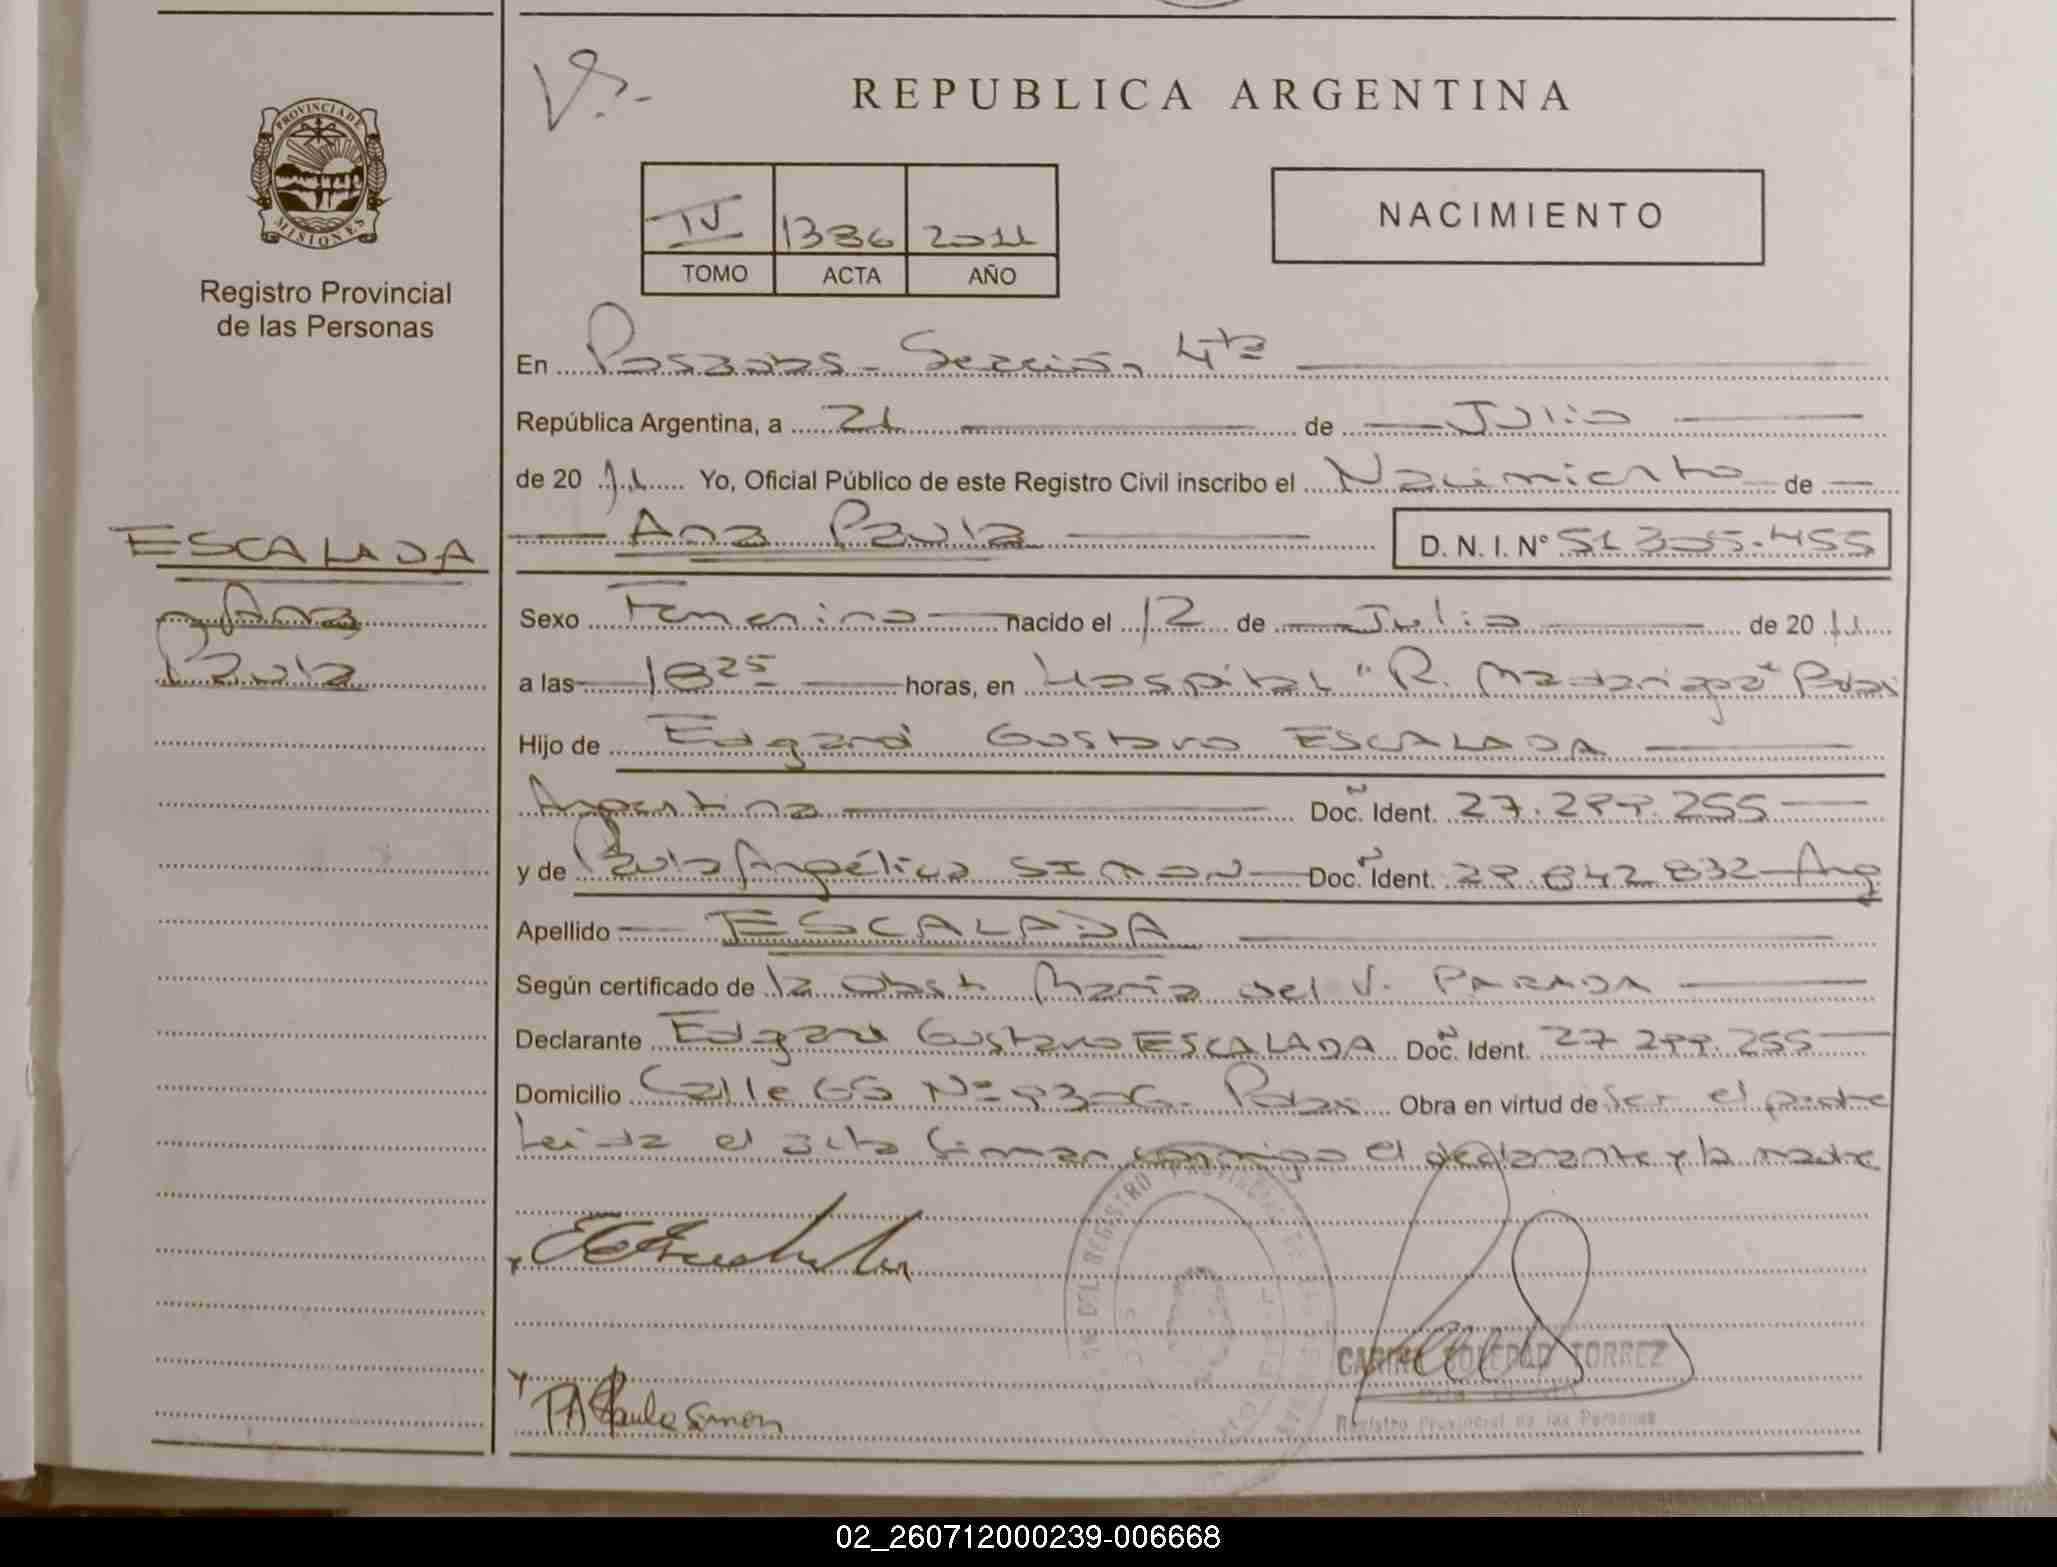 PROVINCIA DE
MISIONES
Registro Provincial
de las Personas
REPUBLICA ARGENTINA
IV 1386 2011
TOMO ACTA AÑO
NACIMIENTO
En Posadas - Sección 4ta
República Argentina, a 21 de Julio
de 20 11 Yo, Oficial Público de este Registro Civil inscribo el Nacimiento de
ESCALADA
Ana Paula
D. N. I. N° 51 305.455
Ana
Paula
Sexo Femenino nacido el 12 de Julio de 20 11
a las 18 25 horas, en Hospital "R. Madariaga" Pdas
Hijo de Edgard Gustavo ESCALADA
Argentina Doc. Ident. 27.299.255
y de Paula Angélica SIMON Doc. Ident. 29.842.832 Arg
Apellido ESCALADA
Según certificado de la Obst. María del V. PARADA
Declarante Edgard Gustavo ESCALADA Doc. Ident. 27 299.255
Domicilio Calle Nº Pdas Obra en virtud de ser el padre
Leida el acta firman conmigo el declarante y la madre
SOLEDAD TORREZ
Registro Provincial de las Personas
Paula Simon
02_260712000239-006668